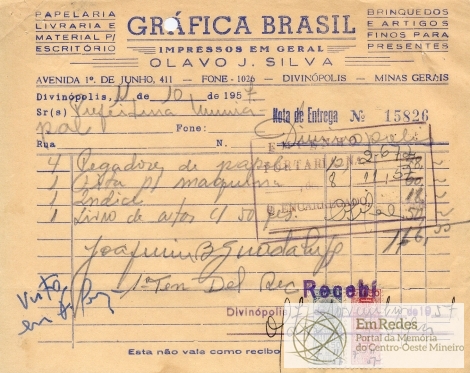 PAPELARIA
LIVRARIA E
MATERIAL P/
ESCRITÓRIO
GRÁFICA BRASIL
IMPRESSOS EM GERAL
OLAVO J. SILVA
BRINQUEDOS
E ARTIGOS
FINOS PARA
PRESENTES
AVENIDA 1º. DE JUNHO, 411 — FONE - 1026 — DIVINÓPOLIS — MINAS GERAIS
Divinópolis, de 10 de 1957
Sr(s) Prefeitura Munici
pal Nota de Entrega Nº 15826
Fone: Divinopolis
Rua N.
4 Pegadores de papel
1 Fita p/ maquina
1 Indice
1 Livro de actos c/ 50
Joaquim B Guadalupe 166,
1º Ten Del Rec
Visto
em
Recebi
Divinópolis, de 1957
Esta não vale como recibo
EmRedes
Portal da Memória
do Centro-Oeste Mineiro